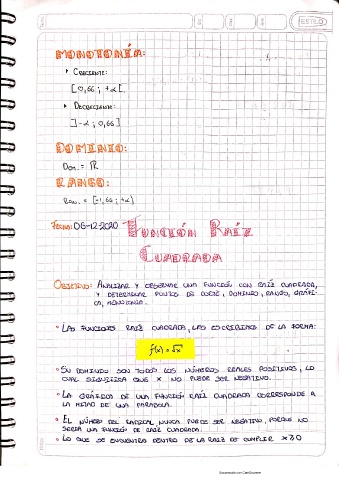 ESTILO
MONOTONÍA:
‣ CRECIENTE:
[0,66 ; +∝[
‣ DECRECIENTE:
]-∝ ; 0,66]
DOMINIO:
Dom. = ℝ
RANGO:
Ran. = [-1,66 ; +∝)
FECHA: 06-12-2020
FUNCIÓN RAÍZ
CUADRADA
OBJETIVO: ANALIZAR Y OBSERVAR UNA FUNCIÓN CON RAÍZ CUADRADA,
Y DETERMINAR PUNTOS DE CORTE, DOMINIO, RANGO, GRÁFI-
CA, MONOTONÍA.
• LAS FUNCIONES RAÍZ CUADRADA, LAS ESCRIBIMOS DE LA FORMA:
f(x) = √x
• SU DOMINIO SON TODOS LOS NÚMEROS REALES POSITIVOS, LO
CUAL SIGNIFICA QUE X NO PUEDE SER NEGATIVO.
• LA GRÁFICA DE UNA FUNCIÓN RAÍZ CUADRADA CORRESPONDE A
LA MITAD DE UNA PARÁBOLA.
• EL NÚMERO DEL RADICAL NUNCA PUEDE SER NEGATIVO, PORQUE NO
SERÍA UNA FUNCIÓN DE RAÍZ CUADRADA.
• LO QUE SE ENCUENTRA DENTRO DE LA RAÍZ DE CUMPLIR X≥0
Escaneado con CamScanner